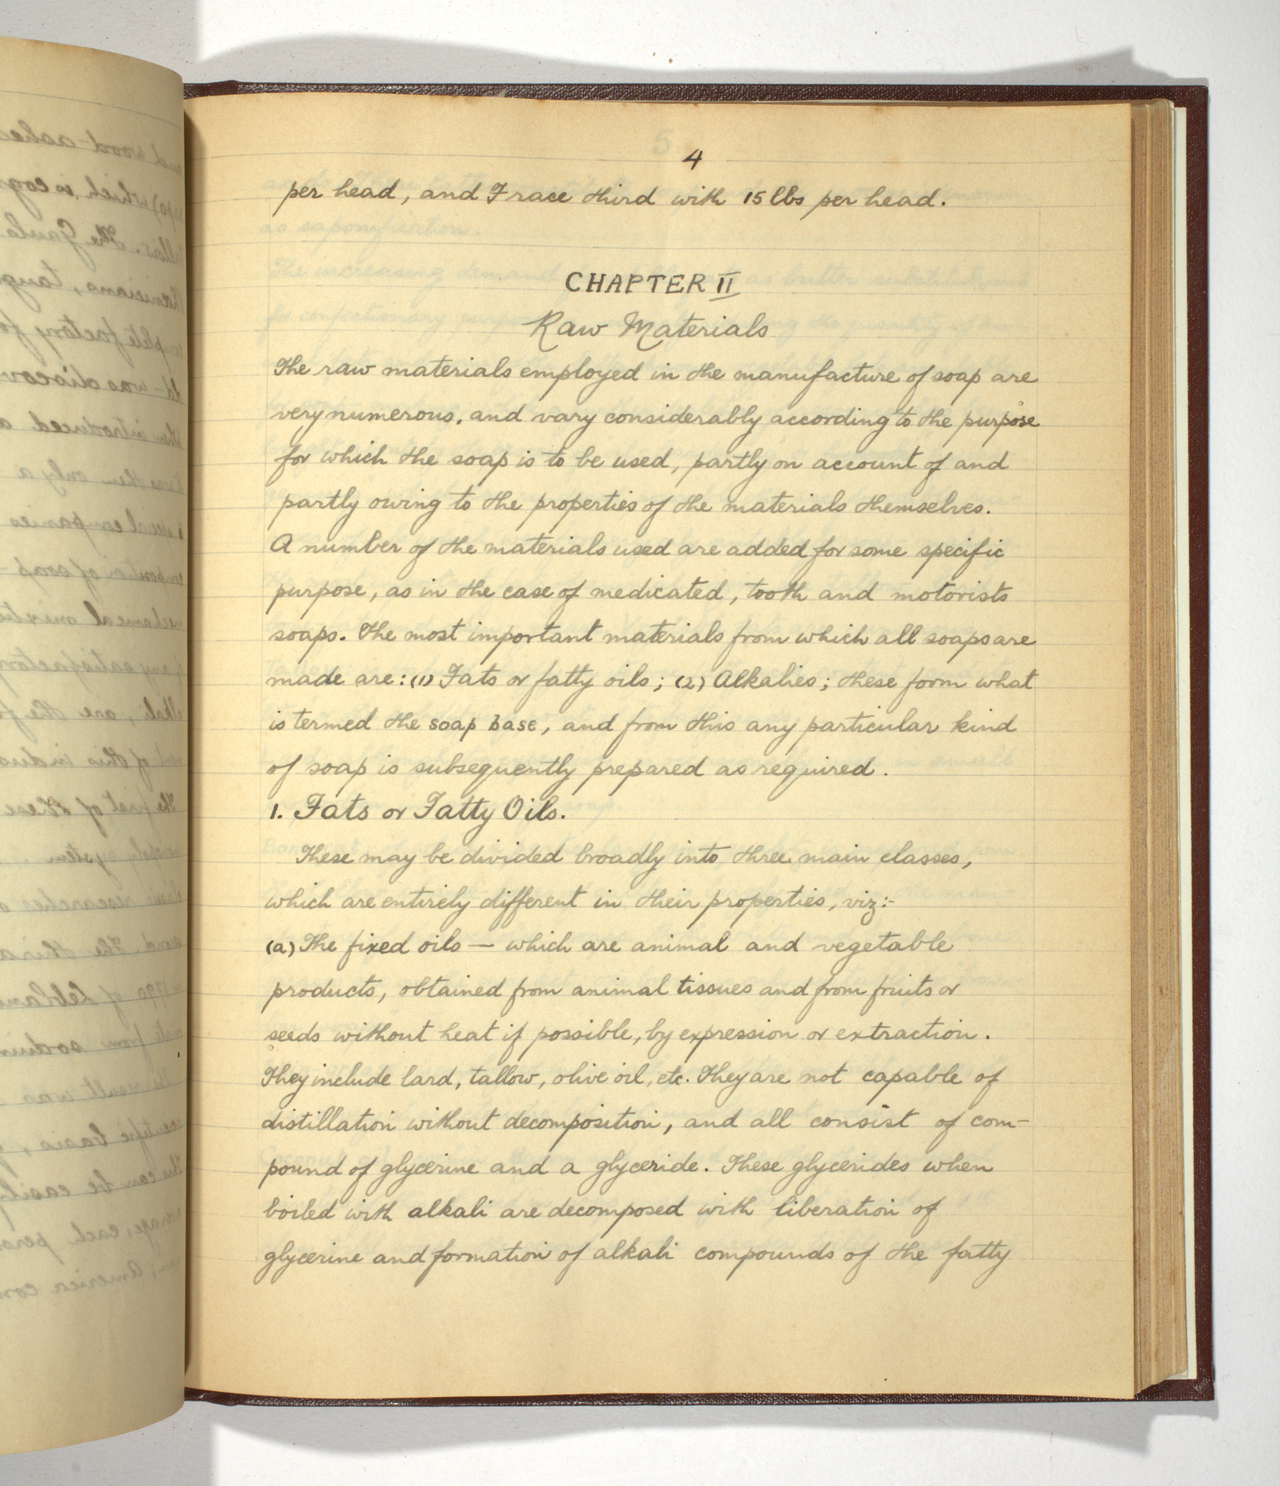 4
per head, and Frace third with 15 lbs per head.
CHAPTER II
Raw Materials
The raw materials employed in the manufacture of soap are
very numerous, and vary considerably according to the purpose
for which the soap is to be used, partly on account of and
partly owing to the properties of the materials themselves.
A number of the materials used are added for some specific
purpose, as in the case of medicated, tooth and motorists
soaps. The most important materials from which all soaps are
made are: (1) Fats or fatty oils; (2) Alkalies; these form what
is termed the soap base, and from this any particular kind
of soap is subsequently prepared as required.
1. Fats or Fatty Oils.
These may be divided broadly into three main classes,
which are entirely different in their properties, viz:-
(a) The fixed oils — which are animal and vegetable
products, obtained from animal tissues and from fruits or
seeds without heat if possible, by expression or extraction.
They include lard, tallow, olive oil, etc. They are not capable of
distillation without decomposition, and all consist of com-
pound of glycerine and a glyceride. These glycerides when
boiled with alkali are decomposed with liberation of
glycerine and formation of alkali compounds of the fatty